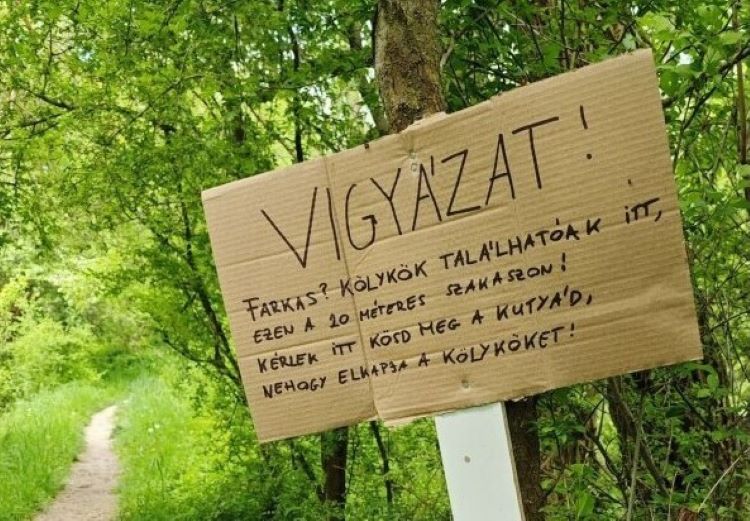 VIGYÁZAT!
FARKAS? KÖLYKÖK TALÁLHATÓAK ITT,
EZEN A 20 MÉTERES SZAKASZON!
KÉRLEK ITT KÖSD MEG A KUTYÁD,
NEHOGY ELKAPJA A KÖLYKÖKET!